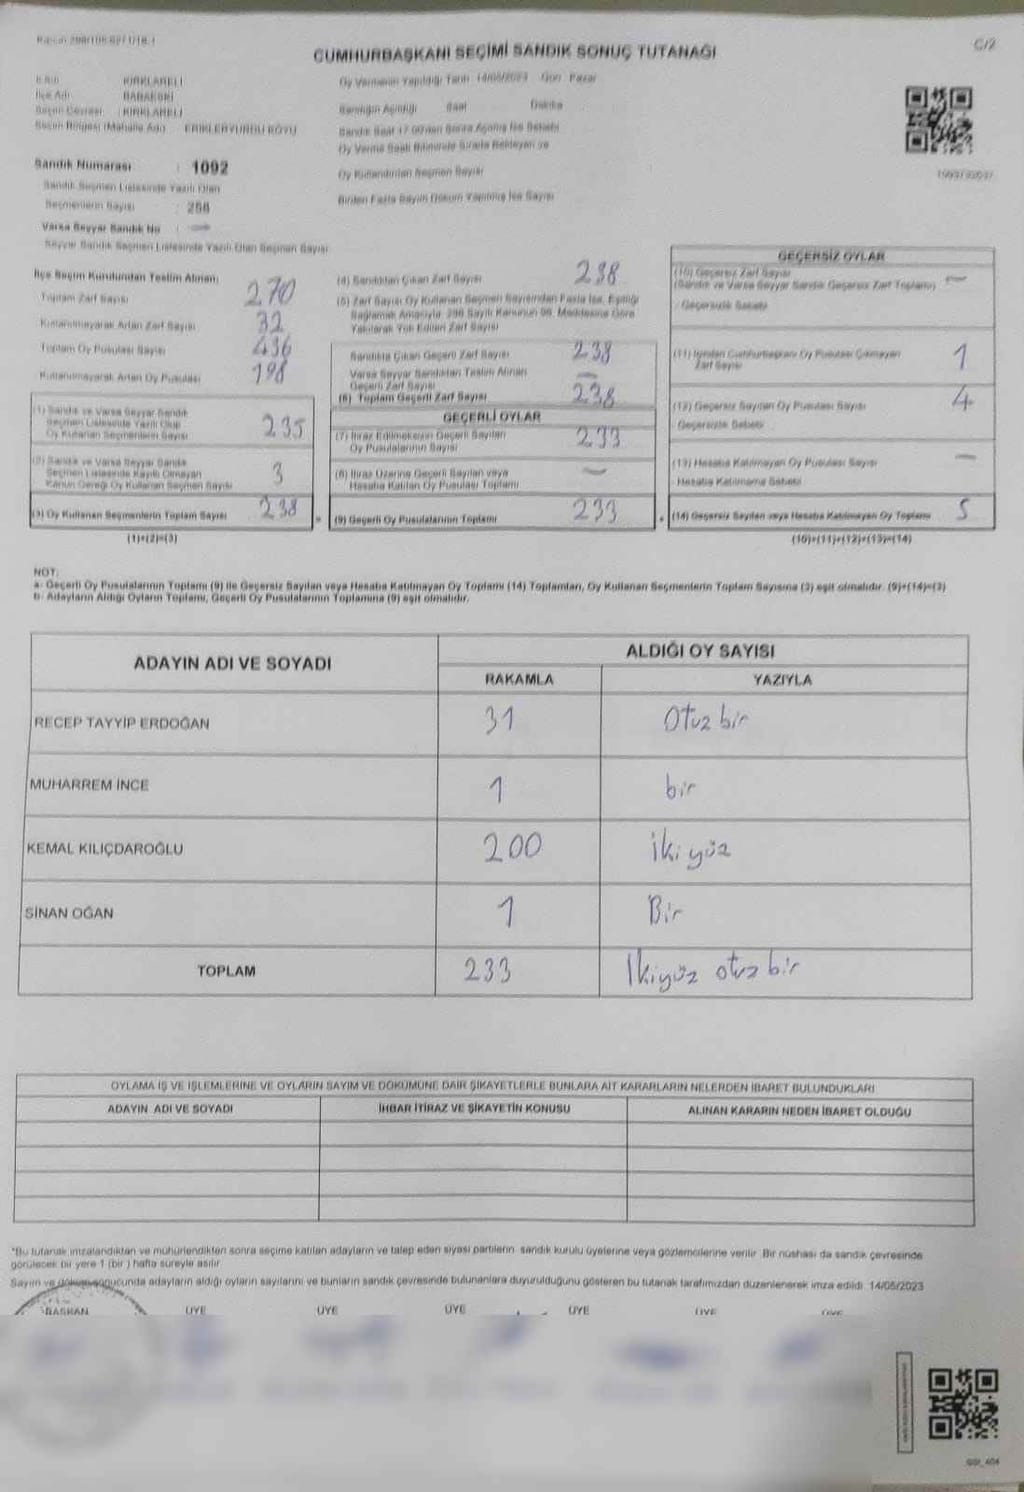 C/2
CUMHURBAŞKANI SEÇİMİ SANDIK SONUÇ TUTANAĞI
İl Adı KIRKLARELİ
İlçe Adı BABAESKİ
Seçim Çevresi KIRKLARELİ
Seçim Bölgesi (Mahalle Adı) ERİKLERYURDU KÖYÜ
Sandık Numarası : 1092
Sandık Seçmen Listesinde Yazılı Olan
Seçmenlerin Sayısı : 258
Varsa Seyyar Sandık No : —
Seyyar Sandık Seçmen Listesinde Yazılı Olan Seçmen Sayısı
Oy Vermenin Yapıldığı Tarih 14/05/2023 Gün Pazar
Sandığın Açıldığı Saat Dakika
Sandık Saat 17.00'den Sonra Açılmış İse Sebebi
Oy Verme Saati Bitiminde Sırada Bekleyen ve
Oy Kullandırılan Seçmen Sayısı
Birden Fazla Sayım Döküm Yapılmış İse Sayısı
İlçe Seçim Kurulundan Teslim Alınan;
Toplam Zarf Sayısı 270
Kullanılmayarak Artan Zarf Sayısı 32
Toplam Oy Pusulası Sayısı 436
Kullanılmayarak Artan Oy Pusulası 198
(1) Sandık ve Varsa Seyyar Sandık
Seçmen Listesinde Yazılı Olup
Oy Kullanan Seçmenlerin Sayısı 235
(2) Sandık ve Varsa Seyyar Sandık
Seçmen Listesinde Kayıtlı Olmayan
Kanun Gereği Oy Kullanan Seçmen Sayısı 3
(3) Oy Kullanan Seçmenlerin Toplam Sayısı 238
(1)+(2)=(3)
(4) Sandıktan Çıkan Zarf Sayısı 238
(5) Zarf Sayısı Oy Kullanan Seçmen Sayısından Fazla İse, Eşitliği
Sağlamak Amacıyla, 298 Sayılı Kanunun 98. Maddesine Göre
Yakılarak Yok Edilen Zarf Sayısı
Sandıkta Çıkan Geçerli Zarf Sayısı 238
Varsa Seyyar Sandıktan Teslim Alınan
Geçerli Zarf Sayısı —
(6) Toplam Geçerli Zarf Sayısı 238
GEÇERLİ OYLAR
(7) İtiraz Edilmeksizin Geçerli Sayılan
Oy Pusulalarının Sayısı 233
(8) İtiraz Üzerine Geçerli Sayılan veya
Hesaba Katılan Oy Pusulası Toplamı —
(9) Geçerli Oy Pusulalarının Toplamı 233
GEÇERSİZ OYLAR
(10) Geçersiz Zarf Sayısı —
(Sandık ve Varsa Seyyar Sandık Geçersiz Zarf Toplamı)
Geçersizlik Sebebi
(11) İçinden Cumhurbaşkanı Oy Pusulası Çıkmayan
Zarf Sayısı 1
(12) Geçersiz Sayılan Oy Pusulası Sayısı 4
Geçersizlik Sebebi
(13) Hesaba Katılmayan Oy Pusulası Sayısı —
Hesaba Katılmama Sebebi
(14) Geçersiz Sayılan veya Hesaba Katılmayan Oy Toplamı 5
(10)+(11)+(12)+(13)=(14)
NOT:
a- Geçerli Oy Pusulalarının Toplamı (9) ile Geçersiz Sayılan veya Hesaba Katılmayan Oy Toplamı (14) Toplamları, Oy Kullanan Seçmenlerin Toplam Sayısına (3) eşit olmalıdır. (9)+(14)=(3)
b- Adayların Aldığı Oyların Toplamı, Geçerli Oy Pusulalarının Toplamına (9) eşit olmalıdır.
ADAYIN ADI VE SOYADI ALDIĞI OY SAYISI
RAKAMLA YAZIYLA
RECEP TAYYİP ERDOĞAN 31 Otuz bir
MUHARREM İNCE 1 bir
KEMAL KILIÇDAROĞLU 200 iki yüz
SİNAN OĞAN 1 Bir
TOPLAM 233 İkiyüz otuz bir
OYLAMA İŞ VE İŞLEMLERİNE VE OYLARIN SAYIM VE DÖKÜMÜNE DAİR ŞİKAYETLERLE BUNLARA AİT KARARLARIN NELERDEN İBARET BULUNDUKLARI
ADAYIN ADI VE SOYADI İHBAR İTİRAZ VE ŞİKAYETİN KONUSU ALINAN KARARIN NEDEN İBARET OLDUĞU
*Bu tutanak imzalandıktan ve mühürlendikten sonra seçime katılan adayların ve talep eden siyasi partilerin sandık kurulu üyelerine veya gözlemcilerine verilir. Bir nüshası da sandık çevresinde
görülecek bir yere 1 (bir) hafta süreyle asılır.
Sayım ve döküm sonucunda adayların aldığı oyların sayılarını ve bunların sandık çevresinde bulunanlara duyurulduğunu gösteren bu tutanak tarafımızdan düzenlenerek imza edildi. 14/05/2023
BAŞKAN ÜYE ÜYE ÜYE ÜYE ÜYE ÜYE